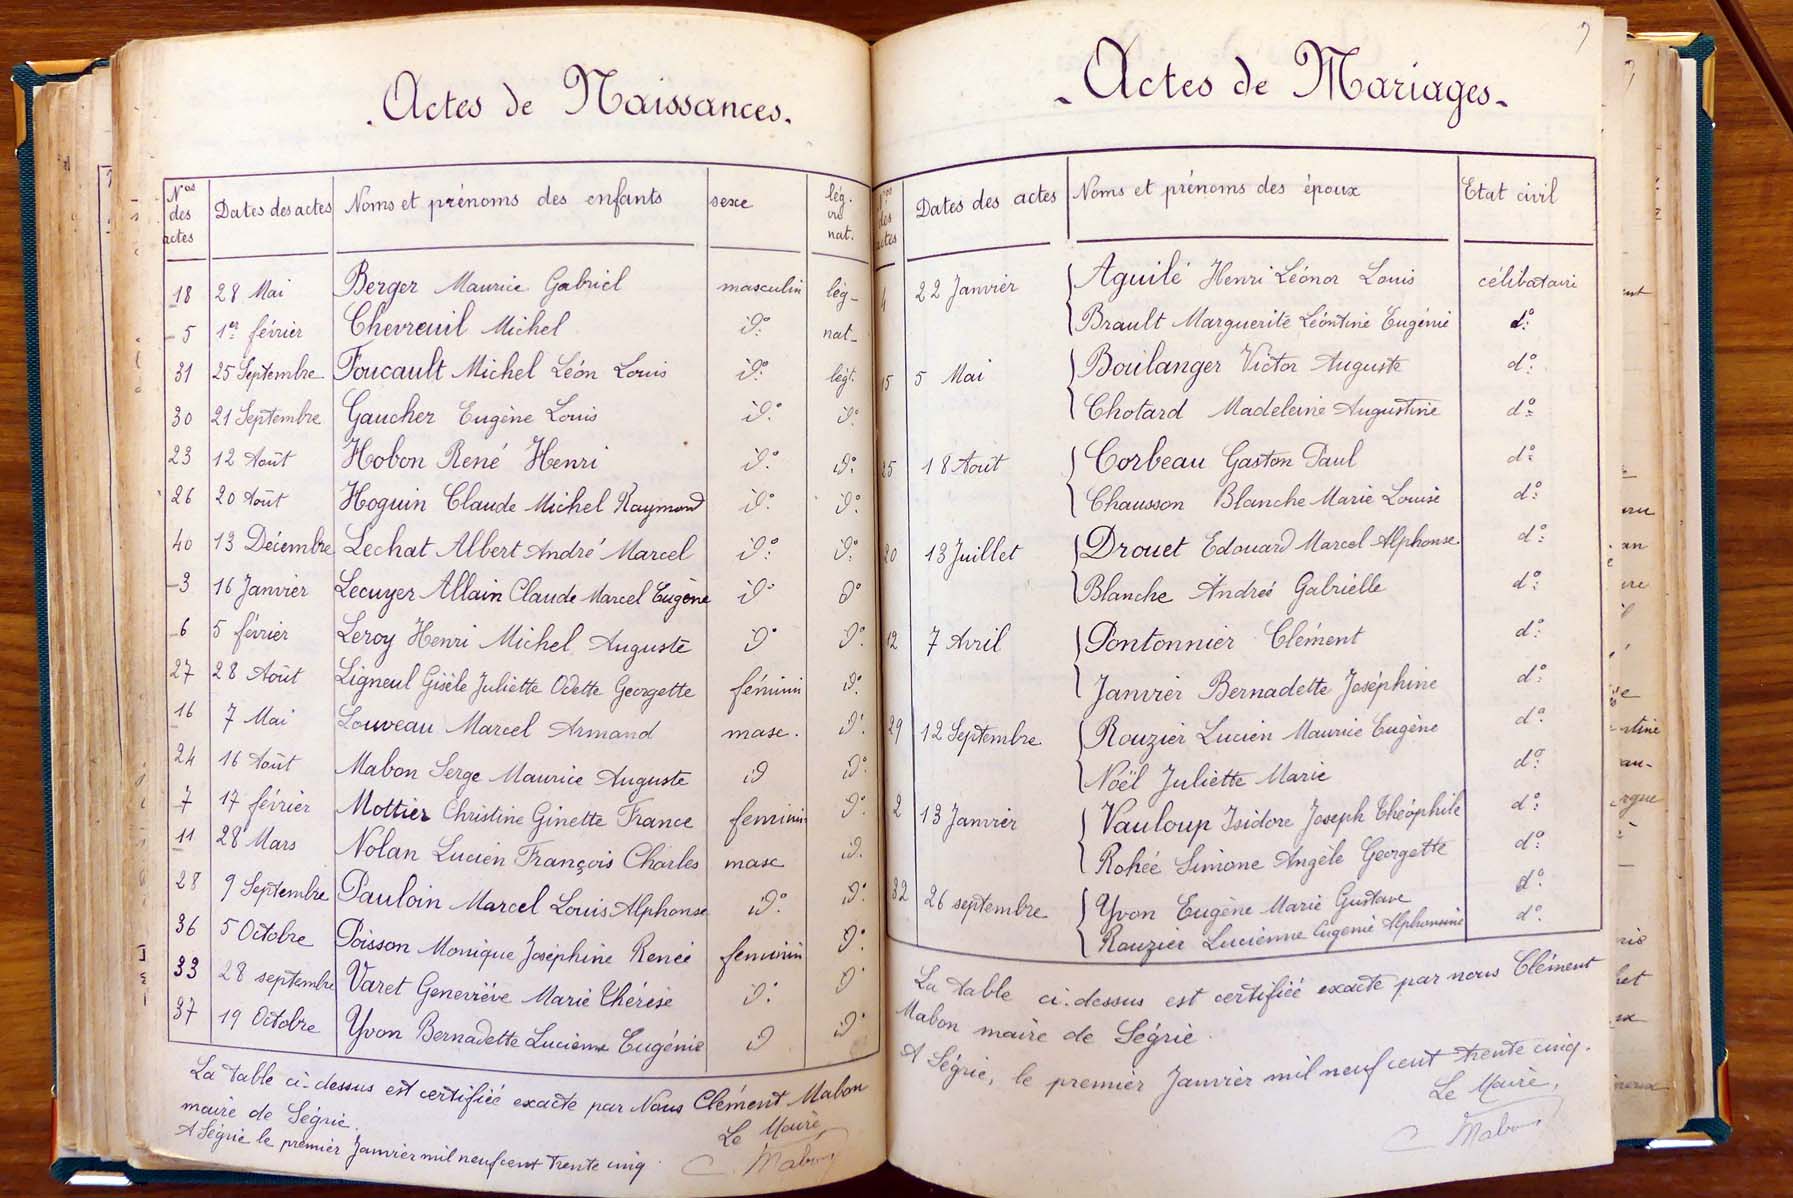 Actes de Naissances.
Nos des actes Dates des actes Noms et prénoms des enfants sexe lég. ou nat.
18 28 Mai Berger Maurice Gabriel masculin lég-
5 1er février Chevreuil Michel id° nat-
31 25 Septembre Foucault Michel Léon Louis id° légt.
30 21 Septembre Gaucher Eugène Louis id° id°
23 12 Août Hobon René Henri id° id°
26 20 Août Hoguin Claude Michel Raymond id° id°
40 13 Décembre Lechat Albert André Marcel id° id°
3 16 Janvier Lecuyer Allain Claude Marcel Eugène id° d°
6 5 février Leroy Henri Michel Auguste id° id°
27 28 Août Ligneul Gisèle Juliette Odette Georgette féminin id°
16 7 Mai Louveau Marcel Armand masc. id°
24 16 Août Mabon Serge Maurice Auguste id id°
7 17 février Mottier Christine Ginette France feminin id°
11 28 Mars Nolan Lucien François Charles masc id.
28 9 Septembre Pauloin Marcel Louis Alphonse id° id°
36 5 Octobre Poisson Monique Joséphine Renée feminin id°
33 28 septembre Varet Geneviève Marie Thérèse id° id°
37 19 Octobre Yvon Bernadette Lucienne Eugénie id id°
La table ci-dessus est certifiée exacte par Nous Clément Mabon
maire de Ségrie.
A Ségrie le premier Janvier mil neuf cent trente cinq.
Le Maire
C. Mabon
7
- Actes de Mariages -
Nos des actes Dates des actes Noms et prénoms des époux Etat civil
4 22 Janvier Aguilé Henri Léonor Louis célibataire
Brault Marguerite Léontine Eugénie d°
15 5 Mai Boulanger Victor Auguste d°
Chotard Madeleine Augustine d°
25 18 Août Corbeau Gaston Paul d°
Chausson Blanche Marie Louise d°
20 13 Juillet Drouet Edouard Marcel Alphonse d°
Blanche Andrée Gabrielle d°
12 7 Avril Pontonnier Clément d°
Janvier Bernadette Joséphine d°
29 12 Septembre Rouzier Lucien Maurice Eugène d°
Noël Juliette Marie d°
2 13 Janvier Vauloup Isidore Joseph Théophile d°
Rohée Simone Angèle Georgette d°
32 26 septembre Yvon Eugène Marie Gustave d°
Rouzier Lucienne Eugenie Alphonsine d°
La table ci-dessus est certifiée exacte par nous Clément
Mabon maire de Ségrie.
A Ségrie, le premier Janvier mil neuf cent trente cinq.
Le Maire,
C Mabon